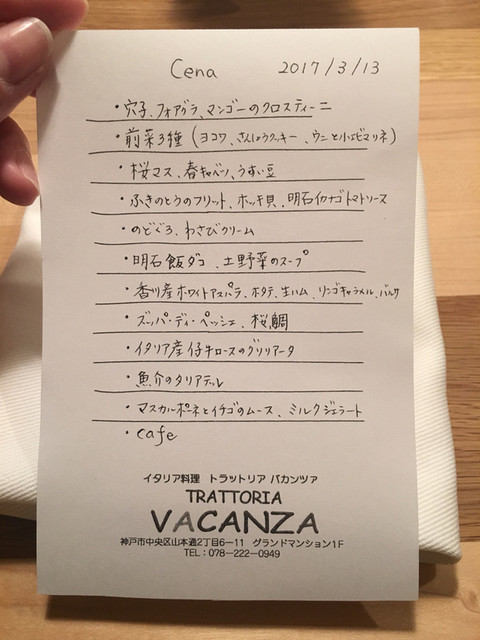 Cena 2017/3/13
・穴子、フォアグラ、マンゴーのクロスティーニ
・前菜3種 (ヨコワ、さんしょうクッキー、ウニと小エビマリネ)
・桜マス、春キャベツ、うすい豆
・ふきのとうのフリット、ホッキ貝、明石イカナゴトマトソース
・のどぐろ、わさびクリーム
・明石飯ダコ、土野菜のスープ
・香川産ホワイトアスパラ、ホタテ、生ハム、リンゴキャラメル、バルサ
・ズッパ・ディ・ペッシェ、桜鯛
・イタリア産仔牛ロースのグリリアータ
・魚介のタリアテッレ
・マスカルポーネとイチゴのムース、ミルクジェラート
・cafe
イタリア料理 トラットリア バカンツァ
TRATTORIA
VACANZA
神戸市中央区山本通2丁目6−11 グランドマンション1F
TEL:078−222−0949